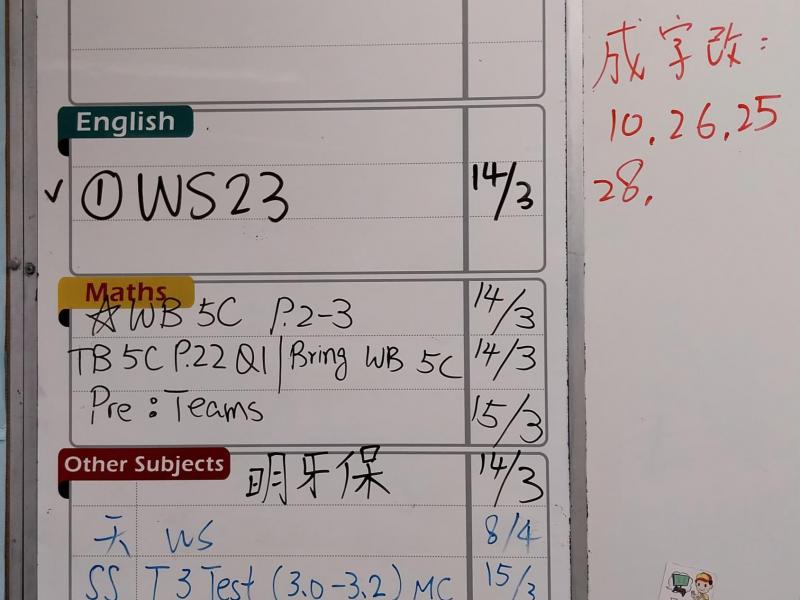 English
✓ ① WS23 14/3
Maths
☆ WB 5C P.2-3 14/3
TB 5C P.22 Q1 | Bring WB 5C 14/3
Pre : Teams 15/3
Other Subjects 明牙保 14/3
天 WS 8/4
SS T3 Test (3.0-3.2) MC 15/3
成字改：
10. 26. 25
28.